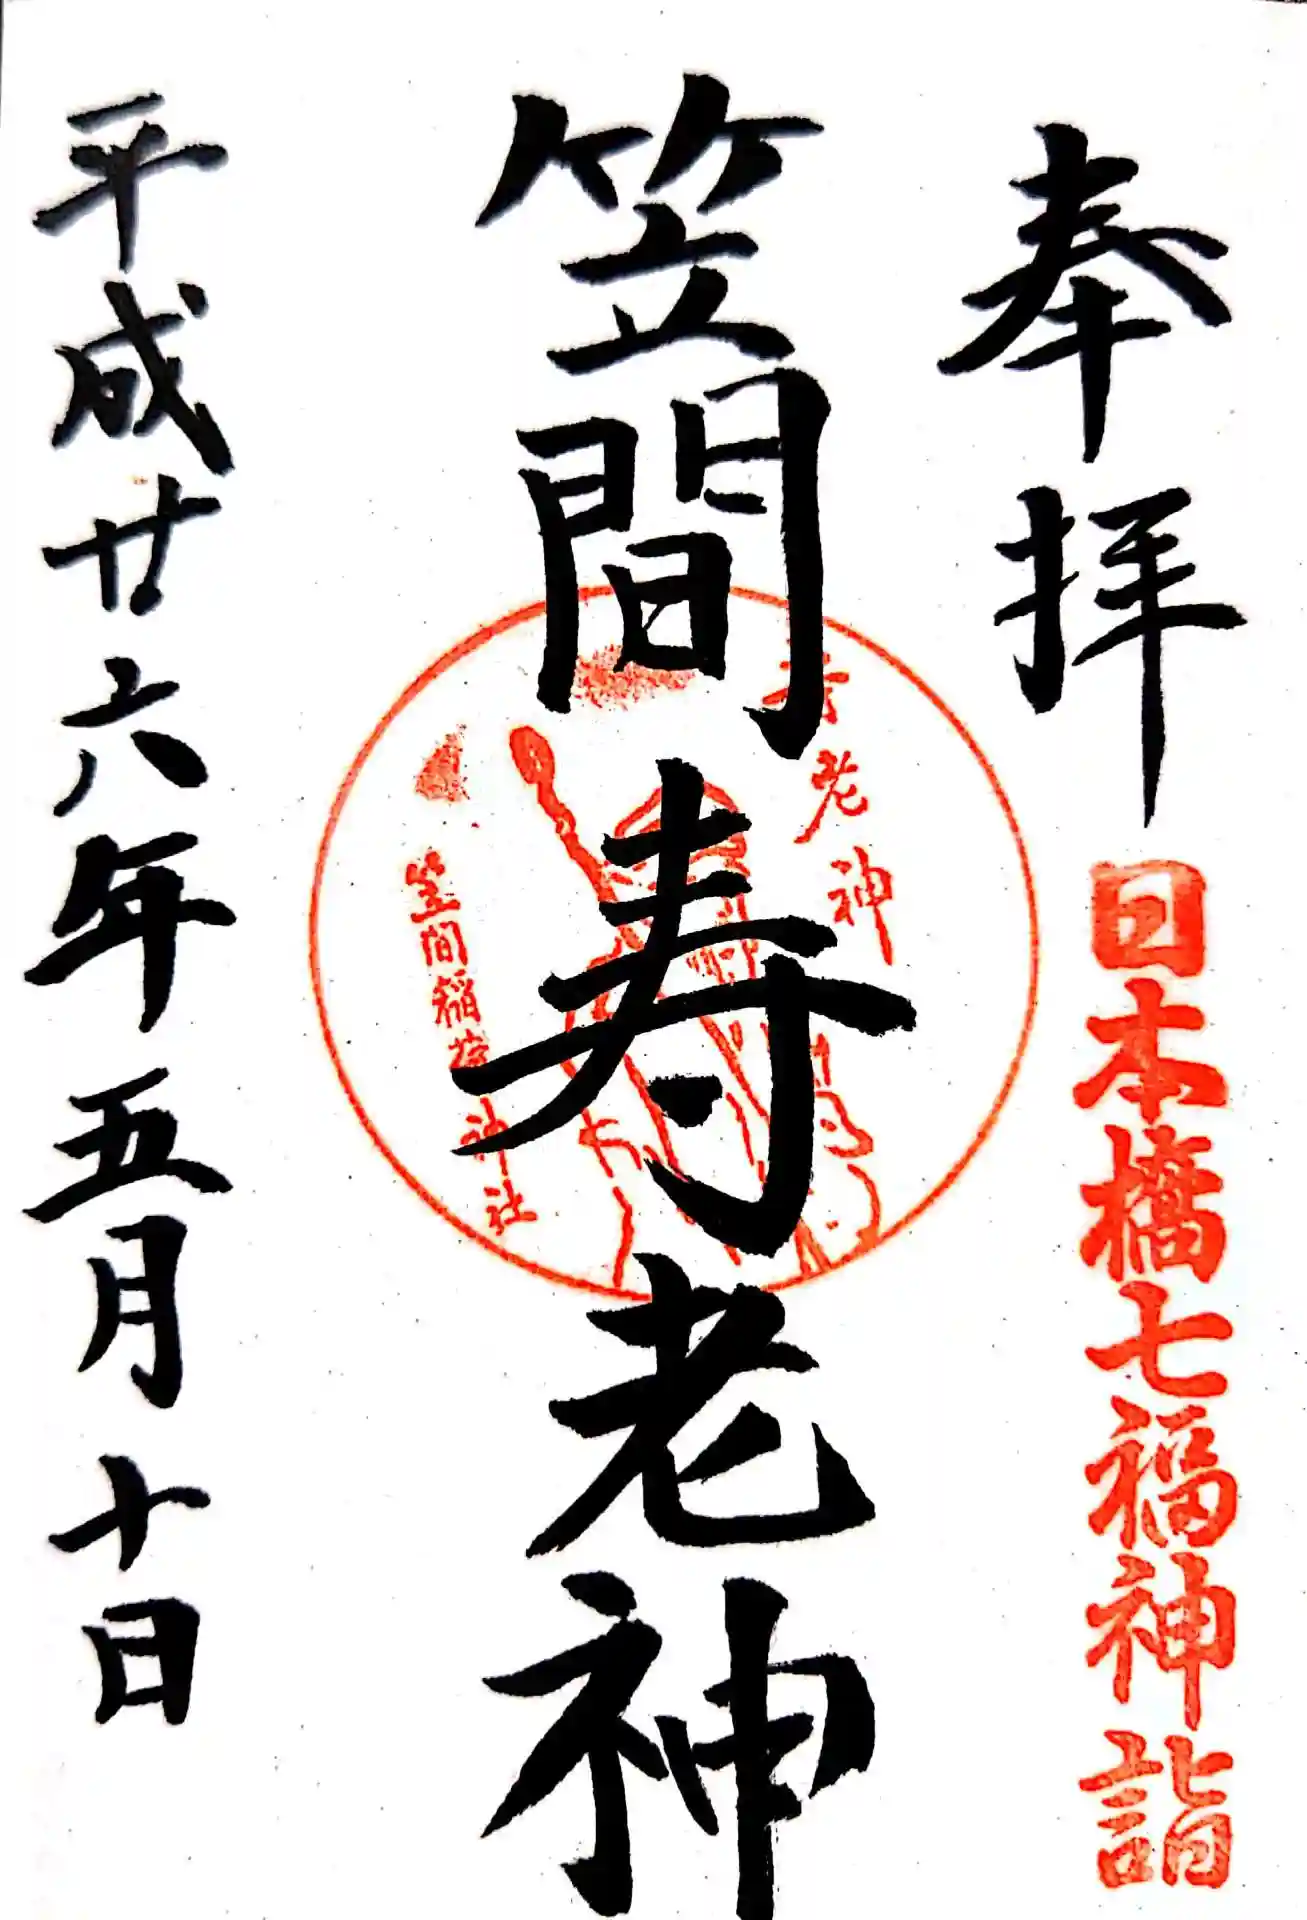 奉拝
日本橋七福神詣
笠間寿老神
寿老神
笠間稲荷神社
平成廿六年五月十日